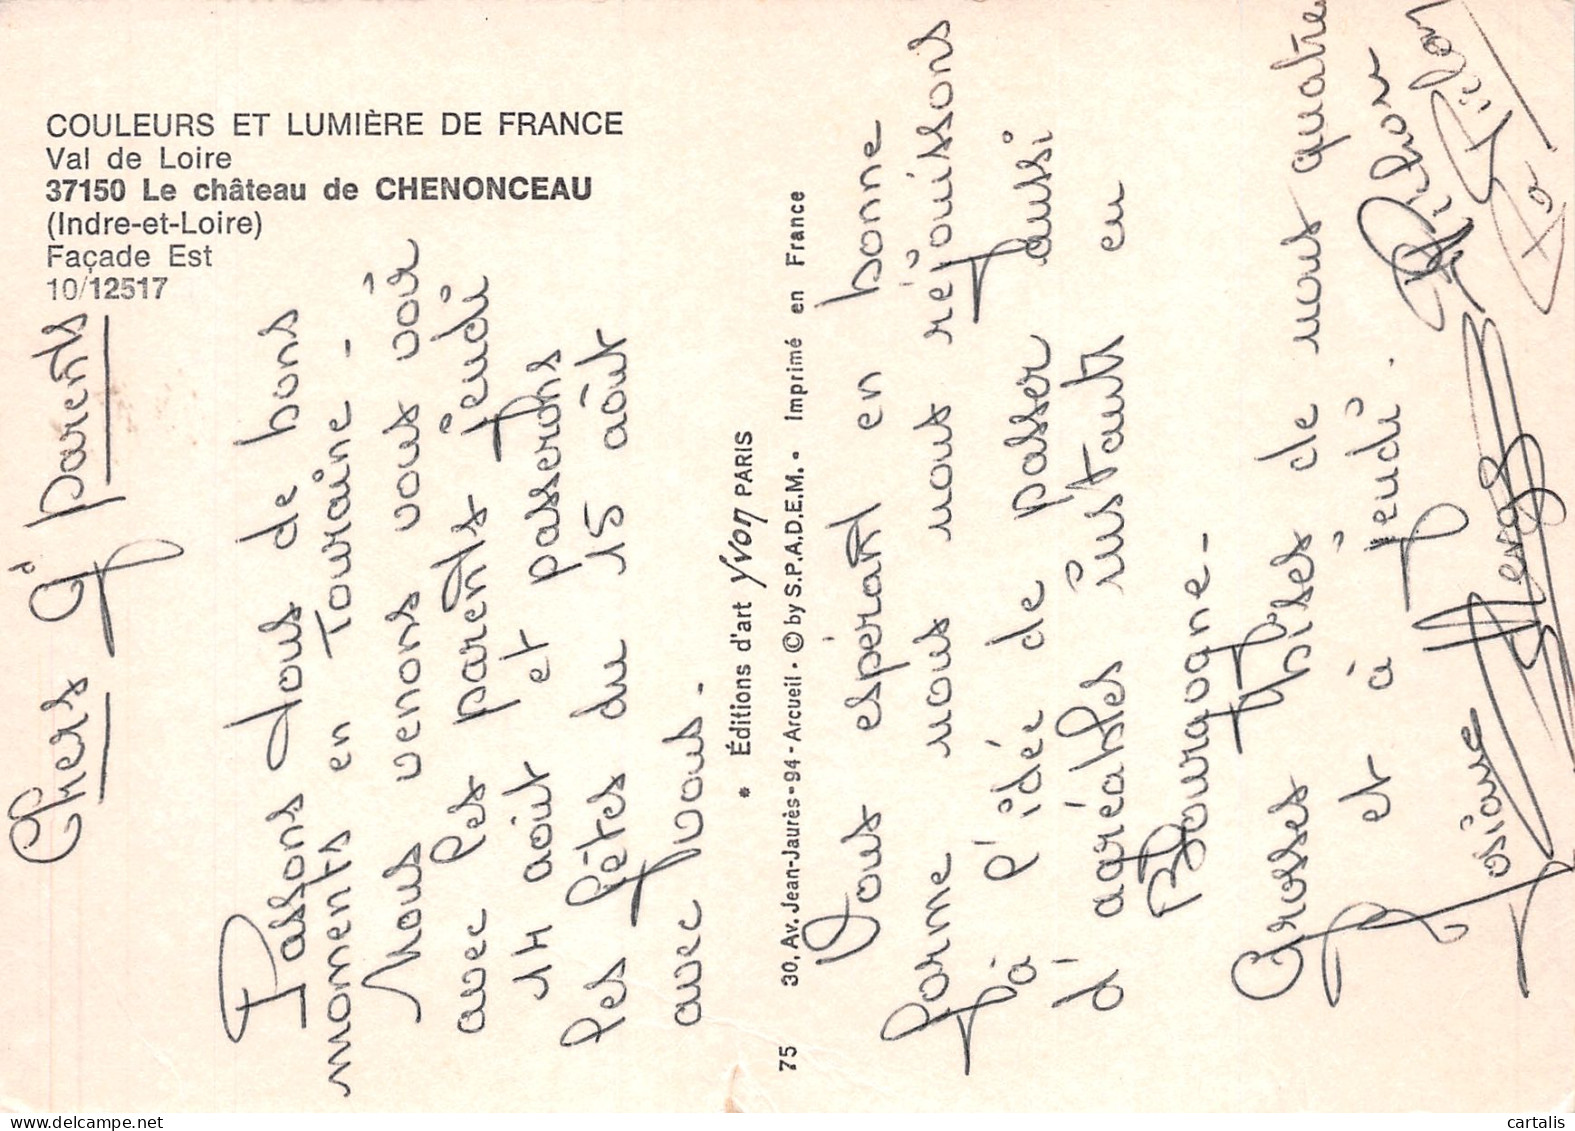 COULEURS ET LUMIÈRE DE FRANCE
Val de Loire
37150 Le château de CHENONCEAU
(Indre-et-Loire)
Façade Est
10/12517
Chers Gd parents
Passons tous de bons
moments en Touraine -
Nous venons vous voir
avec les parents jeudi
14 août et passerons
les fêtes du 15 août
avec vous.
* Éditions d'art Yvon PARIS
75 30, Av. Jean-Jaurès - 94 - Arcueil • © by S.P.A.D.E.M. • Imprimé en France
Vous espérant en bonne
forme nous nous réjouissons
à l'idée de passer aussi
d'agréables instants en
Bourgogne -
Grosses bises de nous quatre
et à jeudi.
Josiane